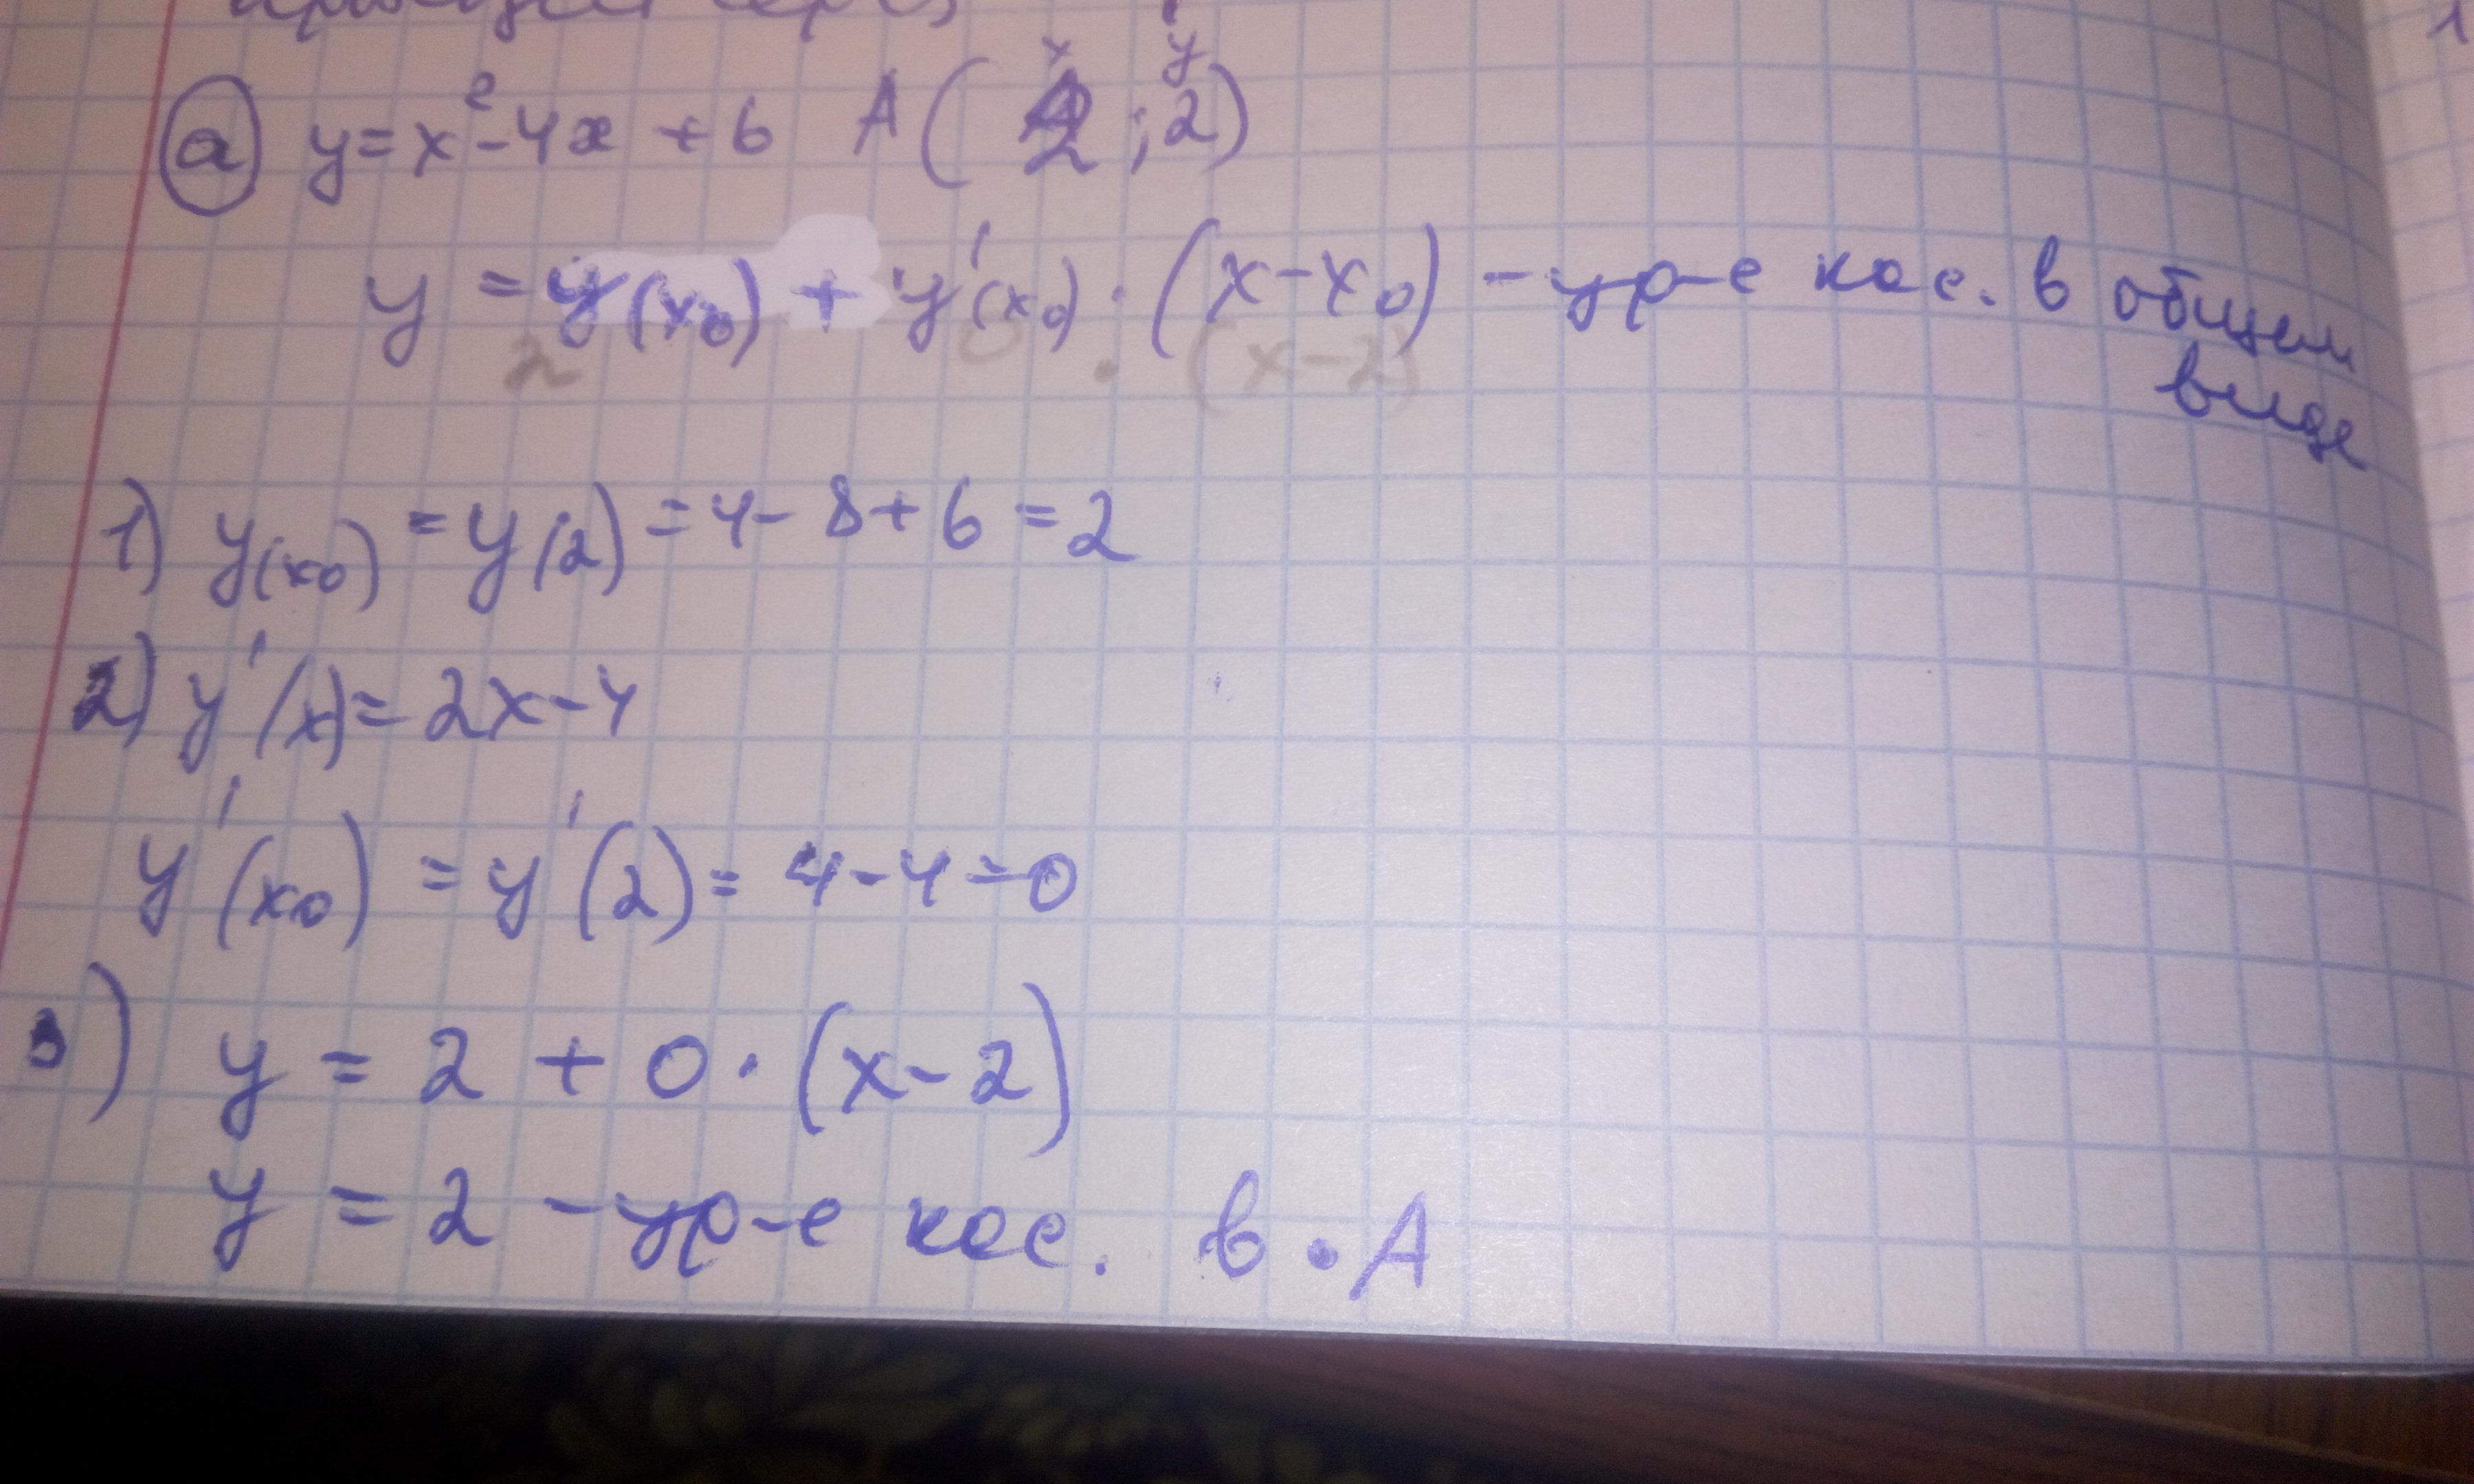 x y
а y = x² - 4x + 6 A (2 ; 2)
y = y(x₀) + y'(x₀) · (x - x₀) - ур-е кас. в общем
2 0 · (x - 2)
виде
1) y(x₀) = y(2) = 4 - 8 + 6 = 2
2) y'(x) = 2x - 4
y'(x₀) = y'(2) = 4 - 4 = 0
3) y = 2 + 0 · (x - 2)
y = 2 - ур-е кас. в · A